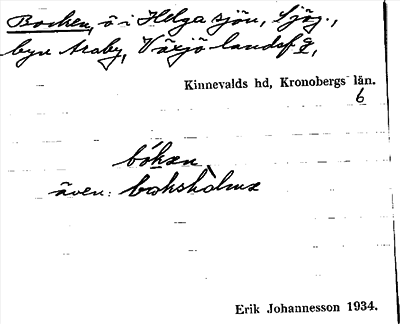 Bocken, ö i Helgasjön, Sjög.,
byn Araby, Växjö landsf g,
Kinnevalds hd, Kronobergs län.
6
bókən
även: bokshòlmə
Erik Johannesson 1934.